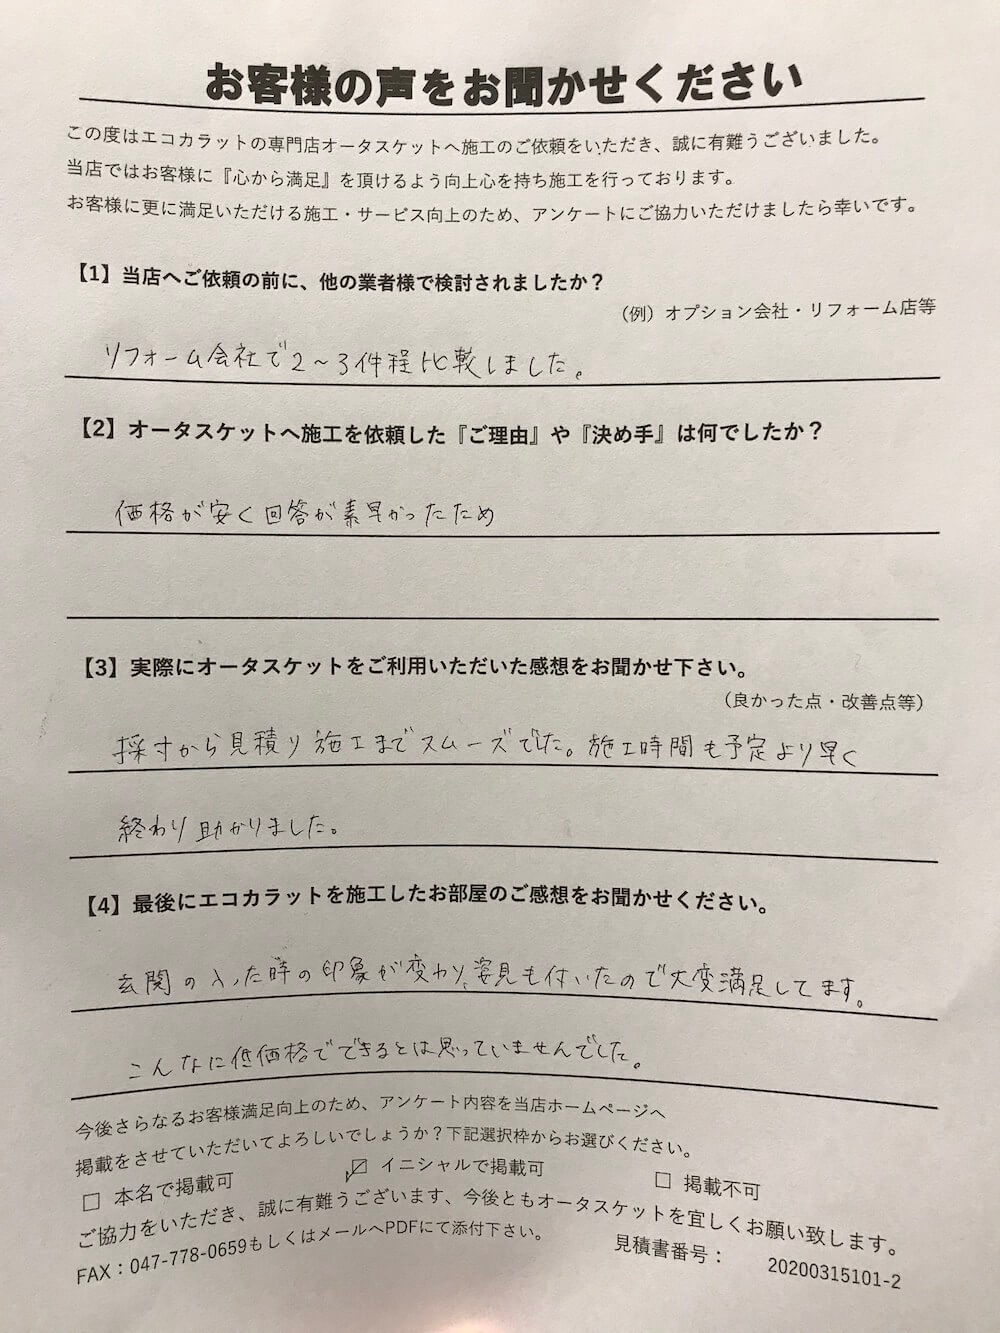 お客様の声をお聞かせください
この度はエコカラットの専門店オータスケットへ施工のご依頼をいただき、誠に有難うございました。
当店ではお客様に『心から満足』を頂けるよう向上心を持ち施工を行っております。
お客様に更に満足いただける施工・サービス向上のため、アンケートにご協力いただけましたら幸いです。
【1】当店へご依頼の前に、他の業者様で検討されましたか？
（例）オプション会社・リフォーム店等
リフォーム会社で2～3件程比較しました。
【2】オータスケットへ施工を依頼した『ご理由』や『決め手』は何でしたか？
価格が安く回答が素早かったため
【3】実際にオータスケットをご利用いただいた感想をお聞かせ下さい。
（良かった点・改善点等）
採寸から見積り施工までスムーズでした。施工時間も予定より早く
終わり助かりました。
【4】最後にエコカラットを施工したお部屋のご感想をお聞かせください。
玄関の入った時の印象が変わり、姿見も付いたので大変満足してます。
こんなに低価格でできるとは思っていませんでした。
今後さらなるお客様満足向上のため、アンケート内容を当店ホームページへ
掲載をさせていただいてよろしいでしょうか？下記選択枠からお選びください。
□ 本名で掲載可 ☑ イニシャルで掲載可 □ 掲載不可
ご協力をいただき、誠に有難うございます、今後ともオータスケットを宜しくお願い致します。
FAX：047-778-0659もしくはメールへPDFにて添付下さい。
見積書番号： 20200315101-2